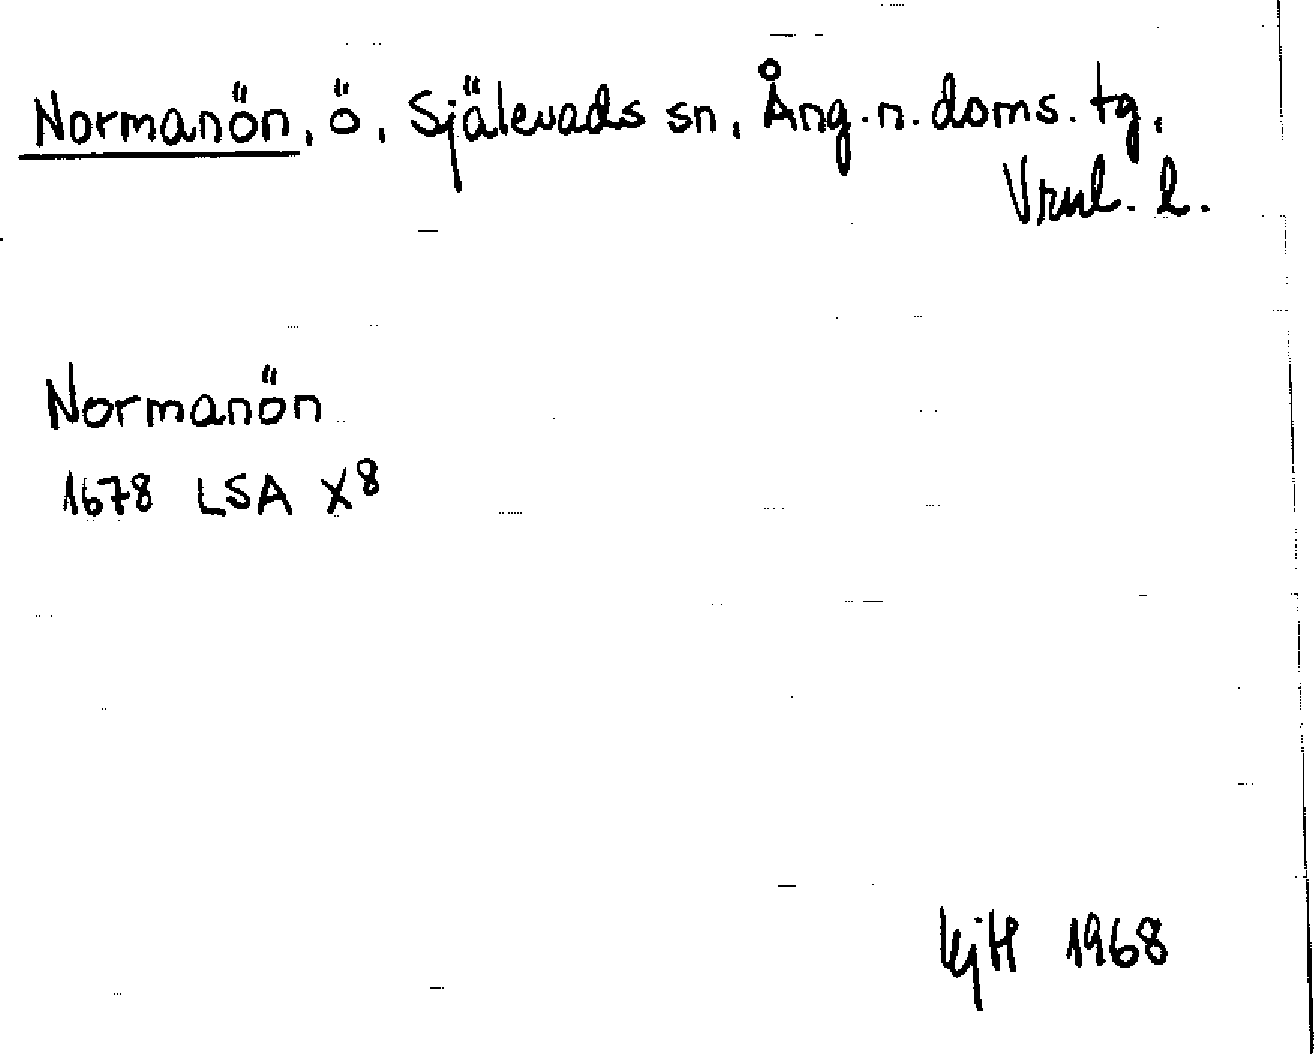 Normanön, ö, Själevads sn, Ång. n. doms. tg,
Vrnl. l.
Normanön
1678 LSA X8
KjH 1968